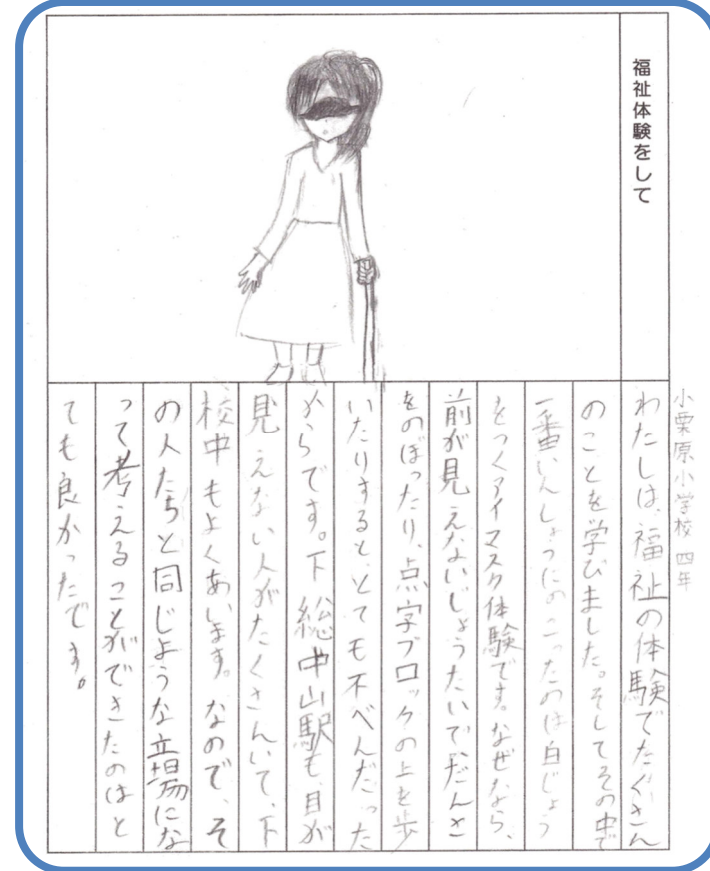 福祉体験をして
小栗原小学校 四年
わたしは、福祉の体験でたくさん
のことを学びました。そしてその中で
一番いんしょうにのこったのは白じょう
をつくアイマスク体験です。なぜなら、
前が見えないじょうたいで、だんさ
をのぼったり、点字ブロックの上を歩
いたりすると、とても不べんだった
からです。下総中山駅も、目が
見えない人がたくさんいて、下
校中もよくあいます。なので、そ
の人たちと同じような立場にな
って考えることができたのはと
ても良かったです。